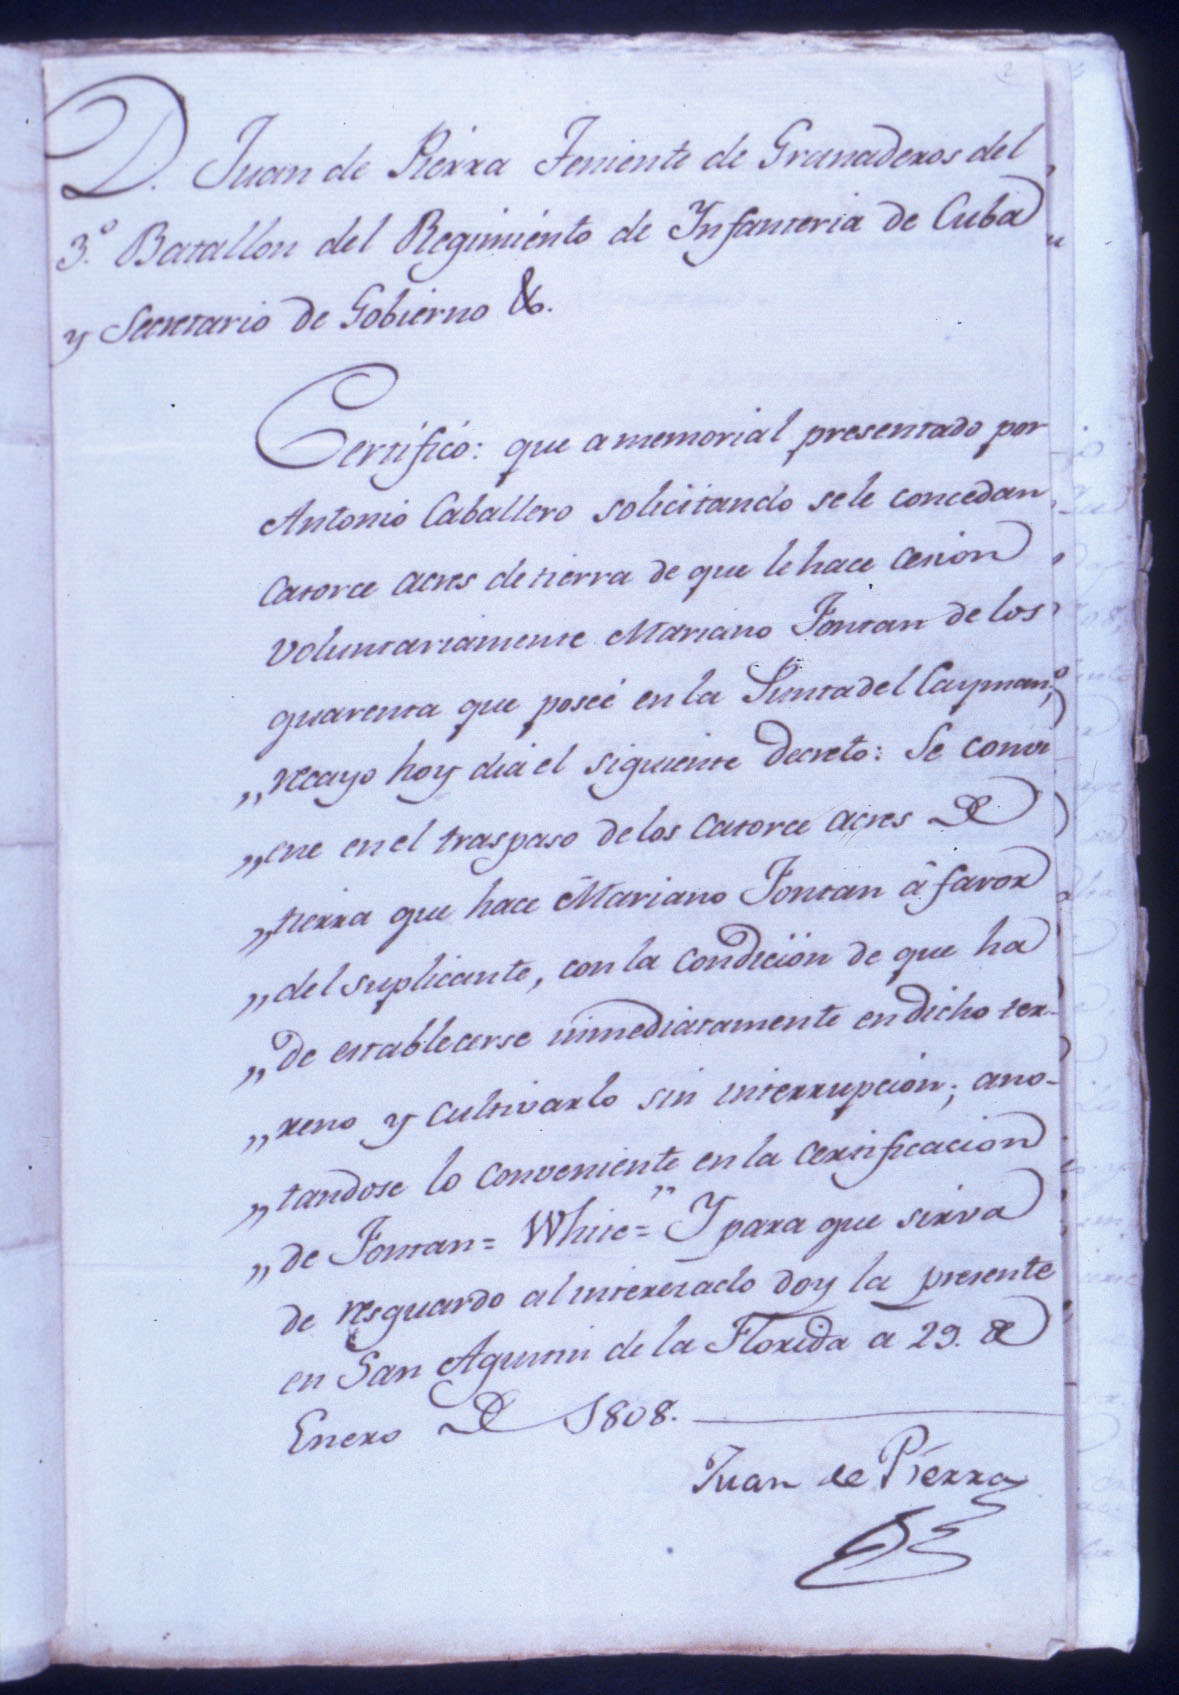 2
D. Juan de Pierra Teniente de Granaderos del
3.º Batallon del Regimiento de Infanteria de Cuba
y Secretario de Gobierno &.
Certifico: que a memorial presentado por
Antonio Caballero solicitando se le concedan
Catorce acres de tierra de que le hace cesion
voluntariamente Mariano Fontan de los
quarenta que posee en la Punta del Cayman,
„ recayo hoy dia el siguiente Decreto: Se convi
„ ene en el traspaso de los Catorce acres de
„ tierra que hace Mariano Fontan â favor
„ del suplicante, con la condicion de que ha
„ de establecerse inmediatamente en dicho ter-
„ reno y cultivarlo sin interrupcion; ano-
„ tandose lo conveniente en la certificacion
„ de Fontan = White =" Y para que sirva
de resguardo al interesado doy la presente
en San Agustin de la Florida a 29. de
Enero de 1808.
Juan de Pierra